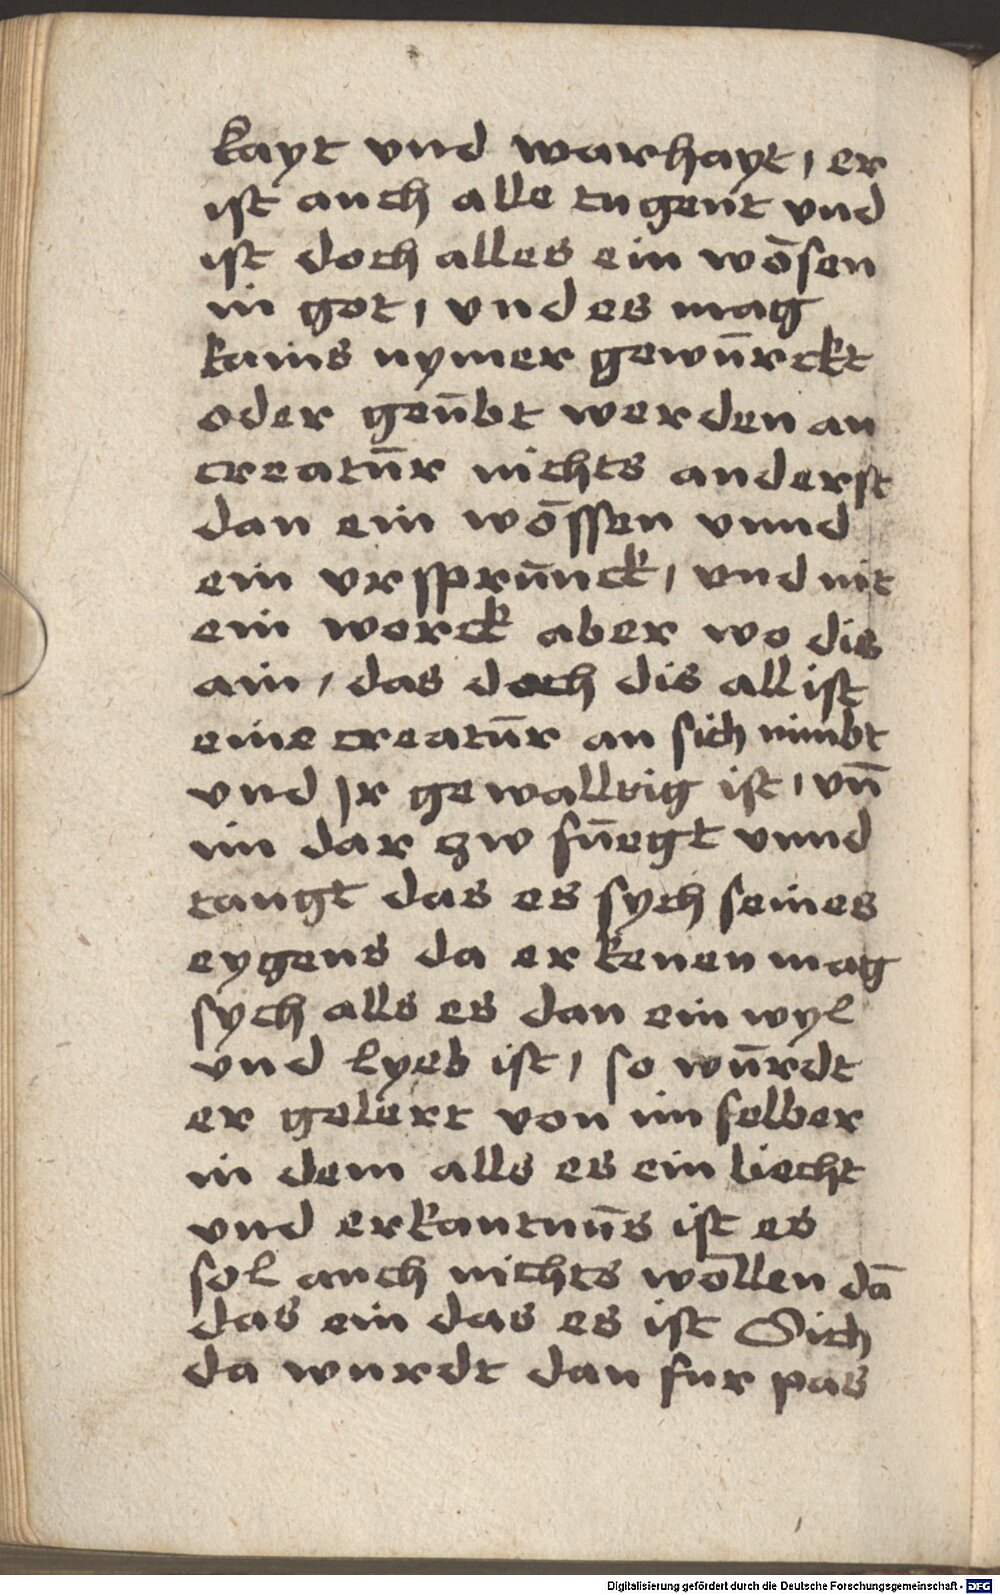 kayt vnd warhayt, er
ist auch alle tugent vnd
ist doch alles ein wōsen
in got, vnd es mag
kains nymer gewūrckt
oder geūbt werden an
creatūr nichts anderst
dan ein wōssen vnnd
ein vrsprūnck, vnd nit
ein worck aber wo dis
ain, das doch dis all ist
eine creatūr an sich nimbt
vnd Jr gewalltig ist, vn̄
im dar zw fūegt vnnd
taugt das es sych seines
eygens da erkenen mag
sych alls es dan ein wyl
vnd lyeb ist, so wūrdt
er gelert von im selber
in dem alls es ein liecht
vnd erkantnūs ist es
sol auch nichts wōllen dā
das ein das es ist Sich
da wurdt dan fur pas
Digitalisierung gefördert durch die Deutsche Forschungsgemeinschaft - DFG